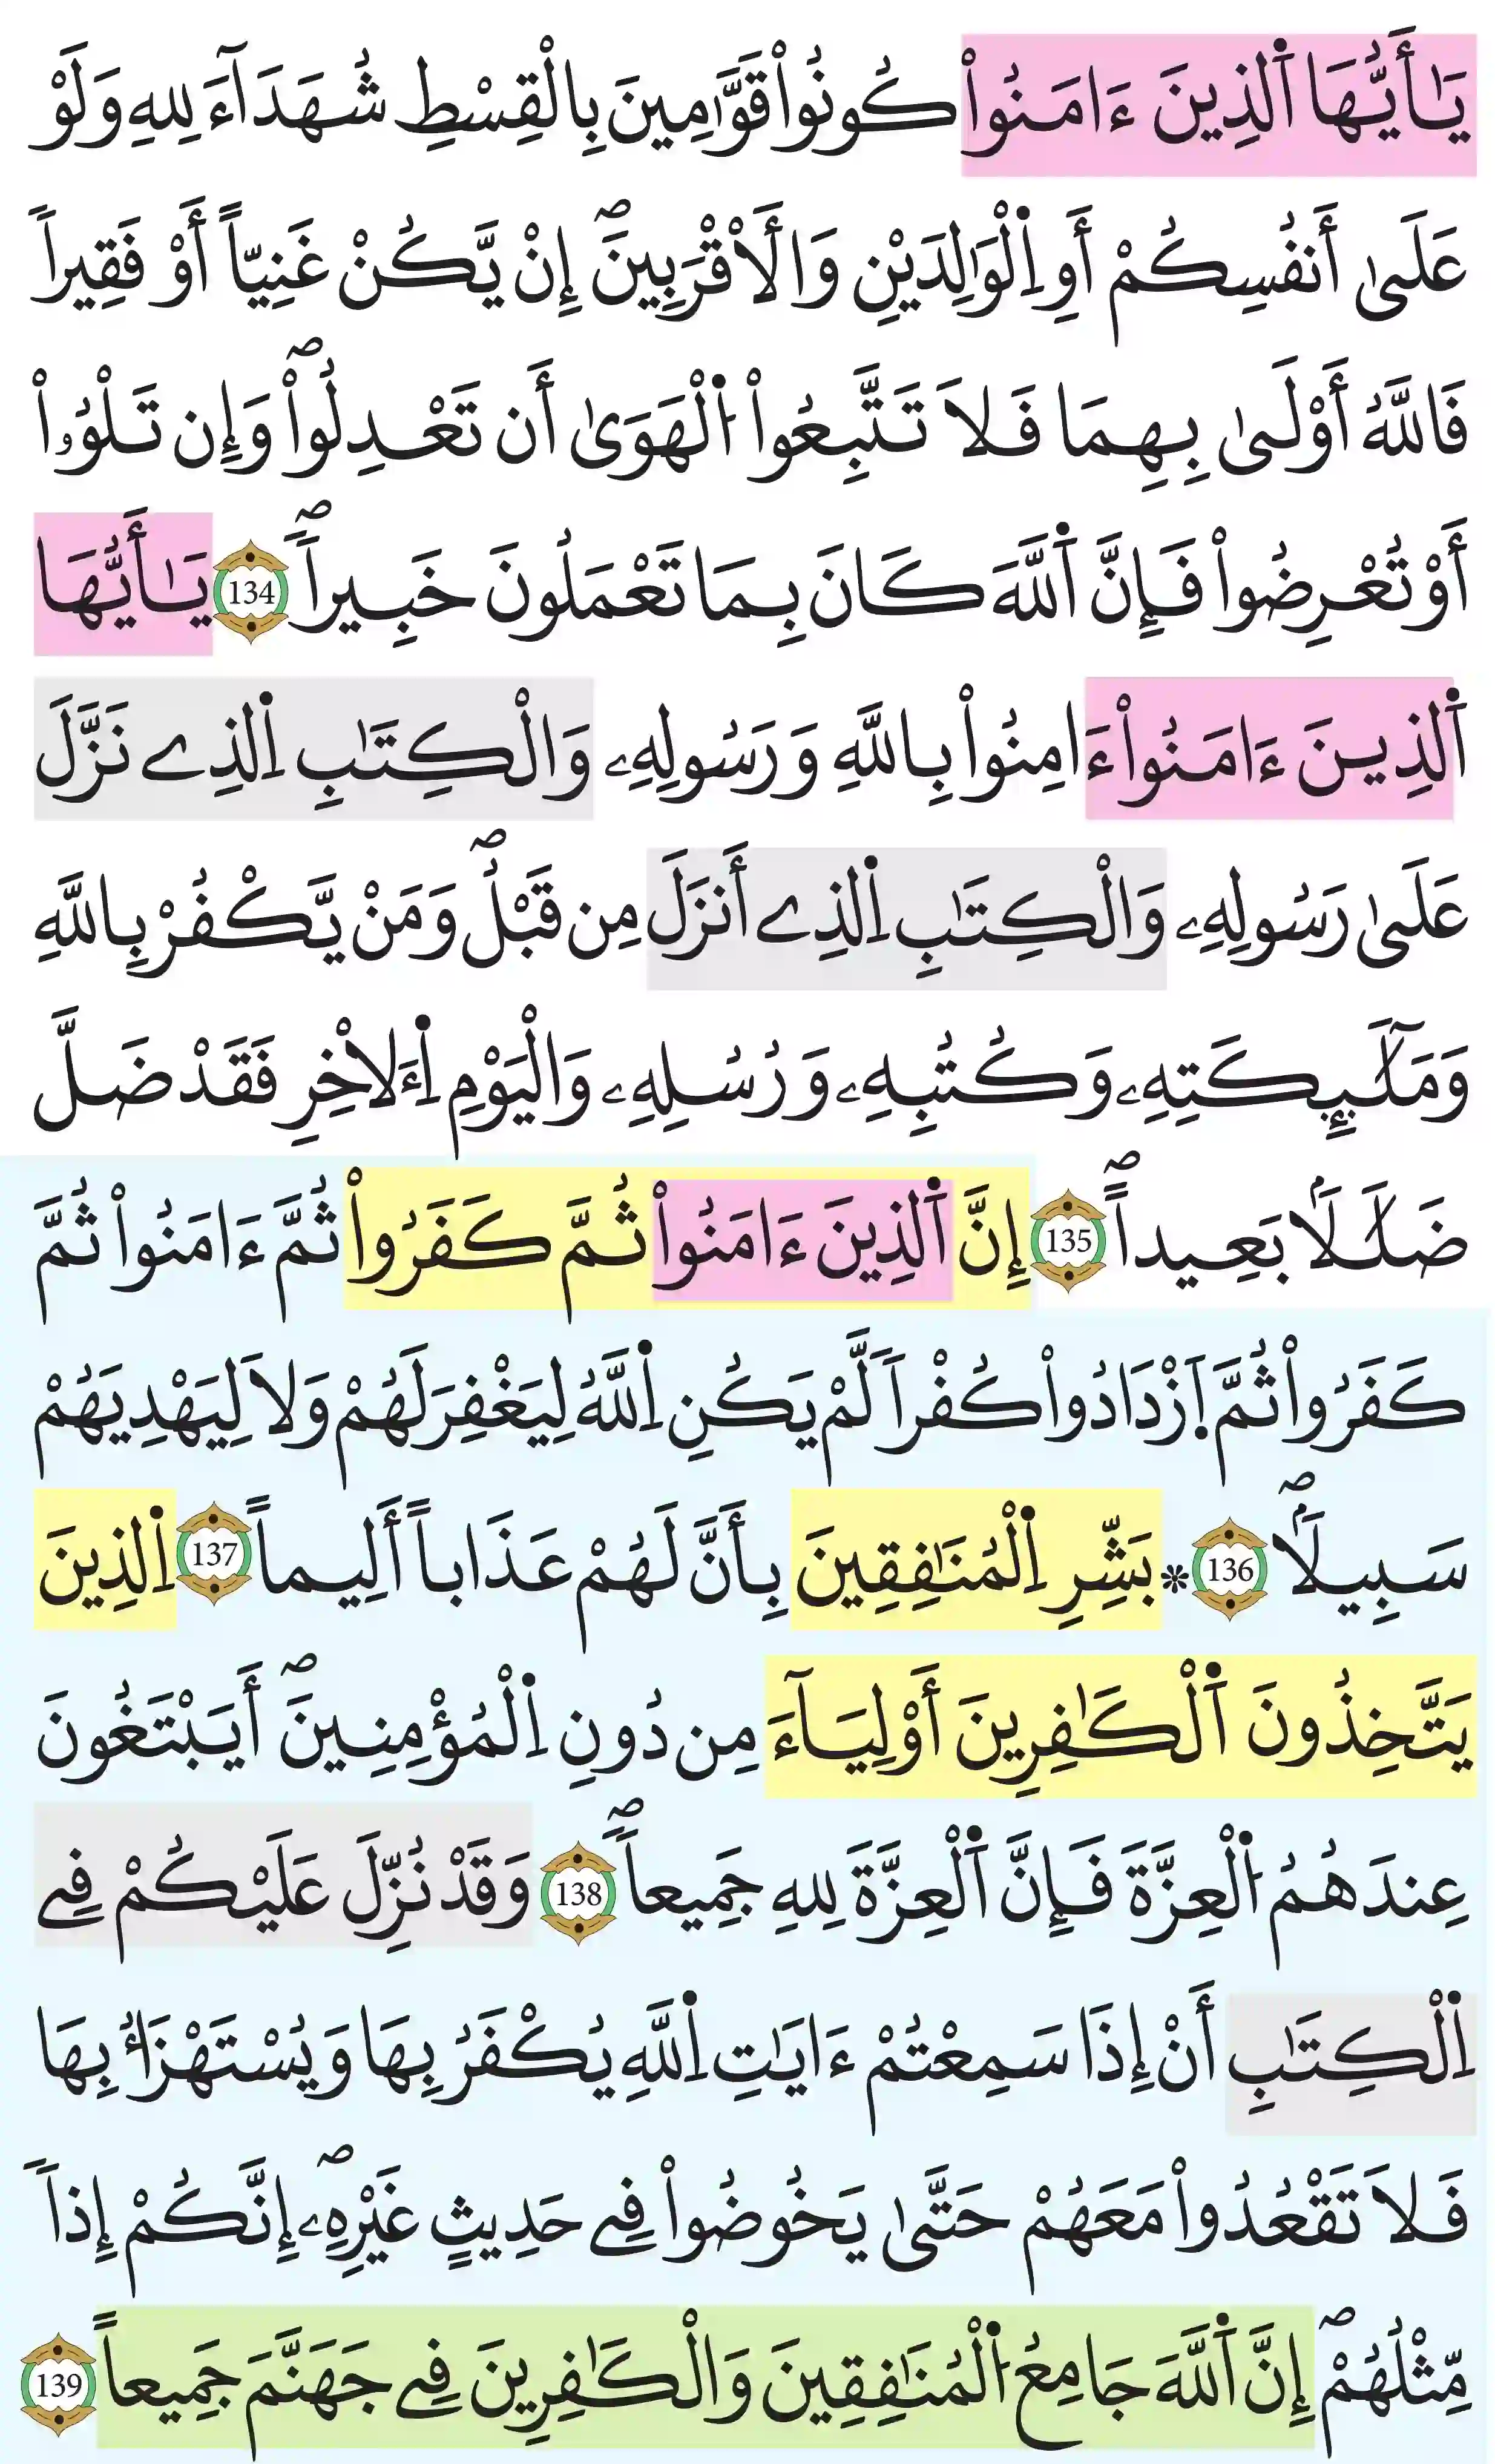 يَٰأَيُّهَا اَ۬لذِينَ ءَامَنُواْ كُونُواْ قَوَّٰمِينَ بِالْقِسْطِ شُهَدَآءَ لِلهِ وَلَوْ
عَلَىٰ أَنفُسِكُمْ أَوِ اِ۬لْوَٰلِدَيْنِ وَالَاقْرَبِينَۖ إِنْ يَّكُنْ غَنِيّاً أَوْ فَقِيراً
فَاللَّهُ أَوْلَىٰ بِهِمَا فَلَا تَتَّبِعُواْ اُ۬لْهَوَىٰ أَن تَعْدِلُواْۖ وَإِن تَلْوُۥاْ
أَوْ تُعْرِضُواْ فَإِنَّ اَ۬للَّهَ كَانَ بِمَا تَعْمَلُونَ خَبِيراًۖ 134 يَٰأَيُّهَا
اَ۬لذِينَ ءَامَنُواْ ءَامِنُواْ بِاللَّهِ وَرَسُولِهِۦ وَالْكِتَٰبِ اِ۬لذِے نَزَّلَ
عَلَىٰ رَسُولِهِۦ وَالْكِتَٰبِ اِ۬لذِے أَنزَلَ مِن قَبْلُۖ وَمَنْ يَّكْفُرْ بِاللَّهِ
وَمَلَٰٓئِكَتِهِۦ وَكُتُبِهِۦ وَرُسُلِهِۦ وَالْيَوْمِ اِ۬ءَلَاخِرِ فَقَدْ ضَلَّ
ضَلَٰلاَۢ بَعِيداًۖ 135 إِنَّ اَ۬لذِينَ ءَامَنُواْ ثُمَّ كَفَرُواْ ثُمَّ ءَامَنُواْ ثُمَّ
كَفَرُواْ ثُمَّ اَ۪زْدَادُواْ كُفْراٗ لَّمْ يَكُنِ اِ۬للَّهُ لِيَغْفِرَ لَهُمْ وَلَا لِيَهْدِيَهُمْ
سَبِيلاَۢۖ 136 * بَشِّرِ اِ۬لْمُنَٰفِقِينَ بِأَنَّ لَهُمْ عَذَاباً أَلِيماً 137 اِ۬لذِينَ
يَتَّخِذُونَ اَ۬لْكَٰفِرِينَ أَوْلِيَآءَ مِن دُونِ اِ۬لْمُؤْمِنِينَۖ أَيَبْتَغُونَ
عِندَهُمُ اُ۬لْعِزَّةَ فَإِنَّ اَ۬لْعِزَّةَ لِلهِ جَمِيعاًۖ 138 وَقَدْ نُزِّلَ عَلَيْكُمْ فِے
اِ۬لْكِتَٰبِ أَنْ إِذَا سَمِعْتُمْ ءَايَٰتِ اِ۬للَّهِ يُكْفَرُ بِهَا وَيُسْتَهْزَأُ بِهَا
فَلَا تَقْعُدُواْ مَعَهُمْ حَتَّىٰ يَخُوضُواْ فِے حَدِيثٍ غَيْرِهِۦۖ إِنَّكُمْ إِذاٗ
مِّثْلُهُمْۖ إِنَّ اَ۬للَّهَ جَامِعُ اُ۬لْمُنَٰفِقِينَ وَالْكَٰفِرِينَ فِے جَهَنَّمَ جَمِيعاً 139